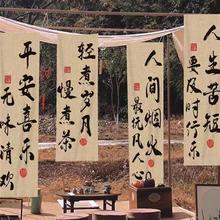 人生苦短
要及时行乐
人间烟火
最抚凡人心
轻煮岁月
慢煮茶
平安喜乐
无味清欢